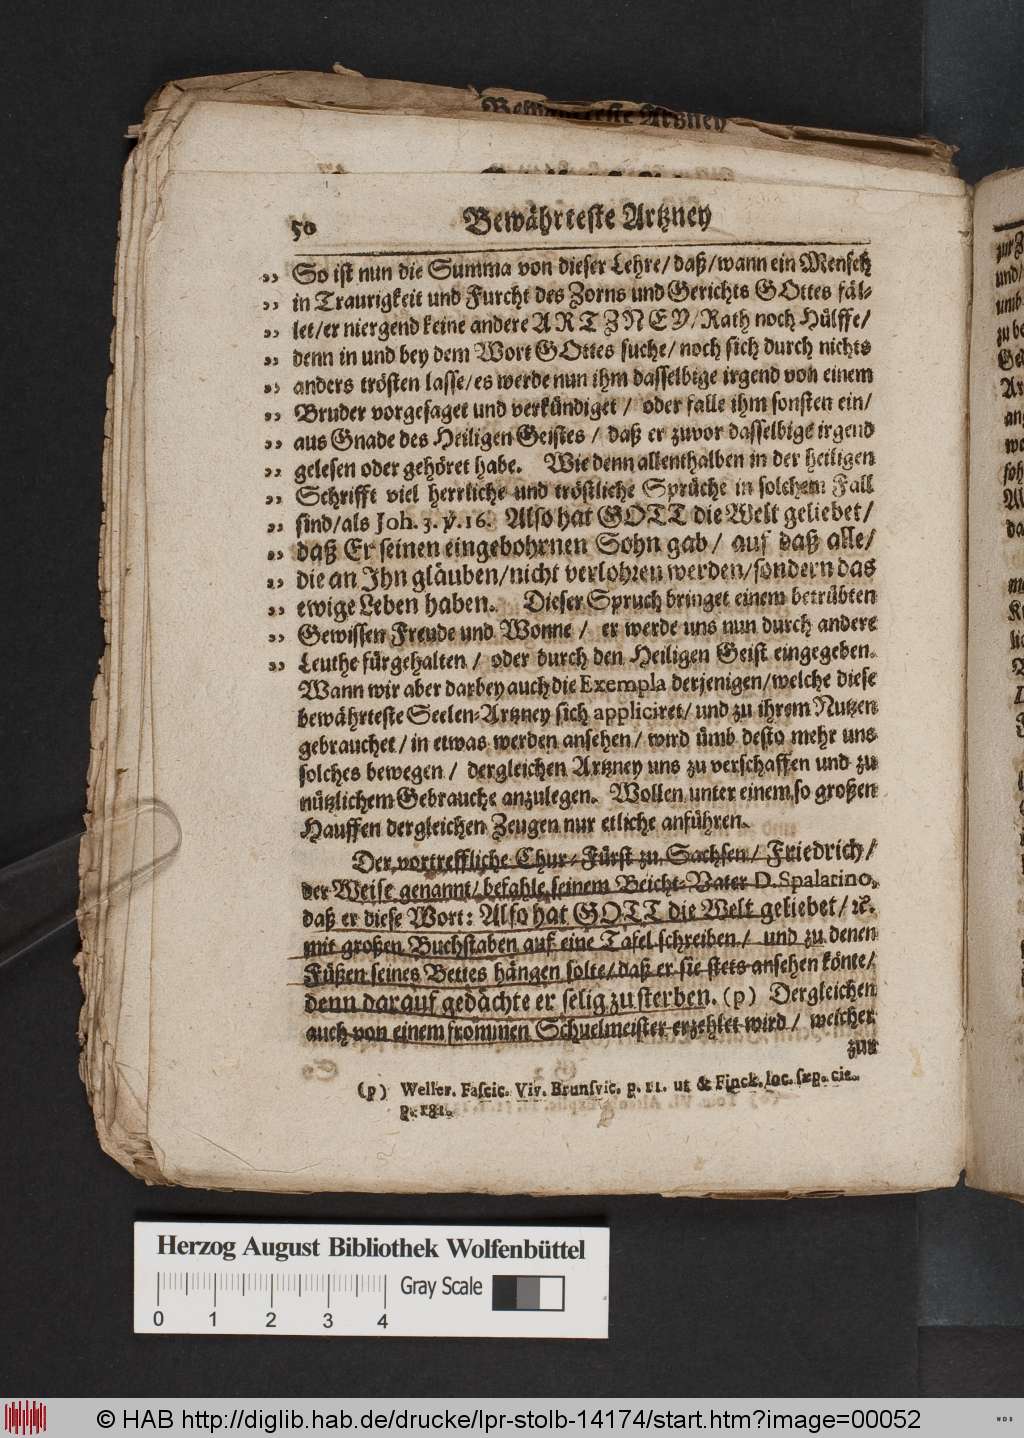 Bewährteste Artzney
50 Bewährteste Artzney
„ So ist nun die Summa von dieser Lehre/ daß/ wann ein Mensch
„ in Traurigkeit und Furcht des Zorns und Gerichts GOttes fäl-
„ let/ er niergend keine andere ARTZNEY/ Rath noch Hülffe/
„ denn in und bey dem Wort GOttes suche/ noch sich durch nichts
„ anders trösten lasse/ es werde nun ihm dasselbige irgend von einem
„ Bruder vorgesaget und verkündiget / oder falle ihm sonsten ein/
„ aus Gnade des Heiligen Geistes / daß er zuvor dasselbige irgend
„ gelesen oder gehöret habe. Wie denn allenthalben in der heiligen
„ Schrifft viel herrliche und tröstliche Sprüche in solchem Fall
„ sind/ als Joh. 3. ℣. 16. Also hat GOTT die Welt geliebet/
„ daß Er seinen eingebohrnen Sohn gab / auf daß alle/
„ die an Ihn gläuben/ nicht verlohren werden/ sondern das
„ ewige Leben haben. Dieser Spruch bringet einem betrübten
„ Gewissen Freude und Wonne / er werde uns nun durch andere
„ Leuthe fürgehalten / oder durch den Heiligen Geist eingegeben.
Wann wir aber darbey auch die Exempla derjenigen/ welche diese
bewährteste Seelen-Artzney sich appliciret/ und zu ihrem Nutzen
gebrauchet / in etwas werden ansehen / wird ümb desto mehr uns
solches bewegen / dergleichen Artzney uns zu verschaffen und zu
nützlichem Gebrauche anzulegen. Wollen unter einem so großen
Hauffen dergleichen Zeugen nur etliche anführen.
Der vortreffliche Chur-Fürst zu Sachsen / Friedrich/
der Weise genannt/ befahle seinem Beicht-Vater D. Spalatino,
daß er diese Wort: Also hat GOTT die Welt geliebet/ ꝛc.
mit großen Buchstaben auf eine Tafel schreiben / und zu denen
Füßen seines Bettes hängen solte/ daß er sie stets ansehen könte/
denn darauf gedächte er selig zu sterben. (p) Dergleichen
auch von einem frommen Schuelmeister erzehlet wird / welcher
zur
(p) Weller. Fascic. Viv. Brunsvic. p. 11. ut & Finck. loc. sæp. cit.
p. 181.
Herzog August Bibliothek Wolfenbüttel
Gray Scale
0 1 2 3 4
© HAB http://diglib.hab.de/drucke/lpr-stolb-14174/start.htm?image=00052